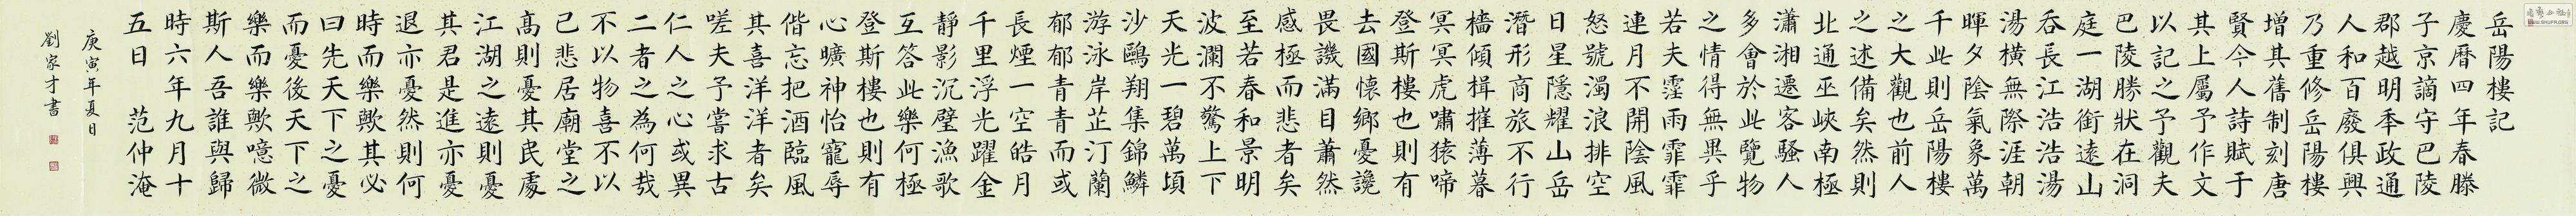 岳陽樓記
慶曆四年春滕
子京謫守巴陵
郡越明秊政通
人和百廢俱興
乃重修岳陽樓
增其舊制刻唐
賢今人詩賦于
其上屬予作文
以記之予觀夫
巴陵勝狀在洞
庭一湖銜遠山
吞長江浩浩湯
湯橫無際涯朝
暉夕陰氣象萬
千此則岳陽樓
之大觀也前人
之述備矣然則
北通巫峽南極
瀟湘遷客騷人
多會於此覽物
之情得無異乎
若夫霪雨霏霏
連月不開陰風
怒號濁浪排空
日星隱耀山岳
潛形商旅不行
檣傾楫摧薄暮
冥冥虎嘯猿啼
登斯樓也則有
去國懷鄉憂讒
畏譏滿目蕭然
感極而悲者矣
至若春和景明
波瀾不驚上下
天光一碧萬頃
沙鷗翔集錦鱗
游泳岸芷汀蘭
郁郁青青而或
長煙一空皓月
千里浮光躍金
靜影沉璧漁歌
互答此樂何極
登斯樓也則有
心曠神怡寵辱
偕忘把酒臨風
其喜洋洋者矣
嗟夫予嘗求古
仁人之心或異
二者之為何哉
不以物喜不以
已悲居廟堂之
高則憂其民處
江湖之遠則憂
其君是進亦憂
退亦憂然則何
時而樂歟其必
曰先天下之憂
而憂後天下之
樂而樂歟噫微
斯人吾誰與歸
時六年九月十
五日 范仲淹
庚寅年夏日
劉家才書